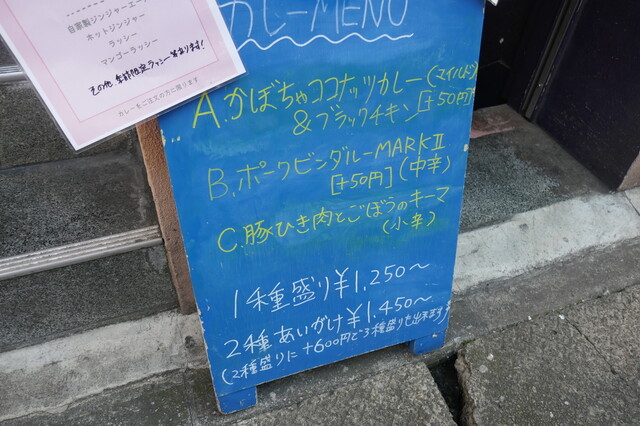 自家製ジンジャーエール
ホットジンジャー
ラッシー
マンゴーラッシー
その他 季節限定ラッシー等あります!
カレーをご注文の方に限ります
カレーMENU
A.かぼちゃココナッツカレー(マイルド)
&ブラックチキン[+50円]
B.ポークビンダルーMARKⅡ
[+50円](中辛)
C.豚ひき肉とごぼうのキーマ
(小辛)
1種盛り¥1,250〜
2種あいがけ¥1,450〜
(2種盛りに+600円で3種盛りも出来ます)